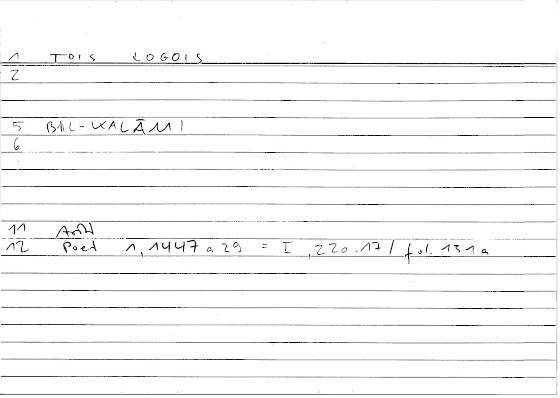 1 TOIS LOGOIS
2
5 BIL-KALĀMI
6
11 Arist
12 Poet 1,1447a29 = I,220.17/fol.131a